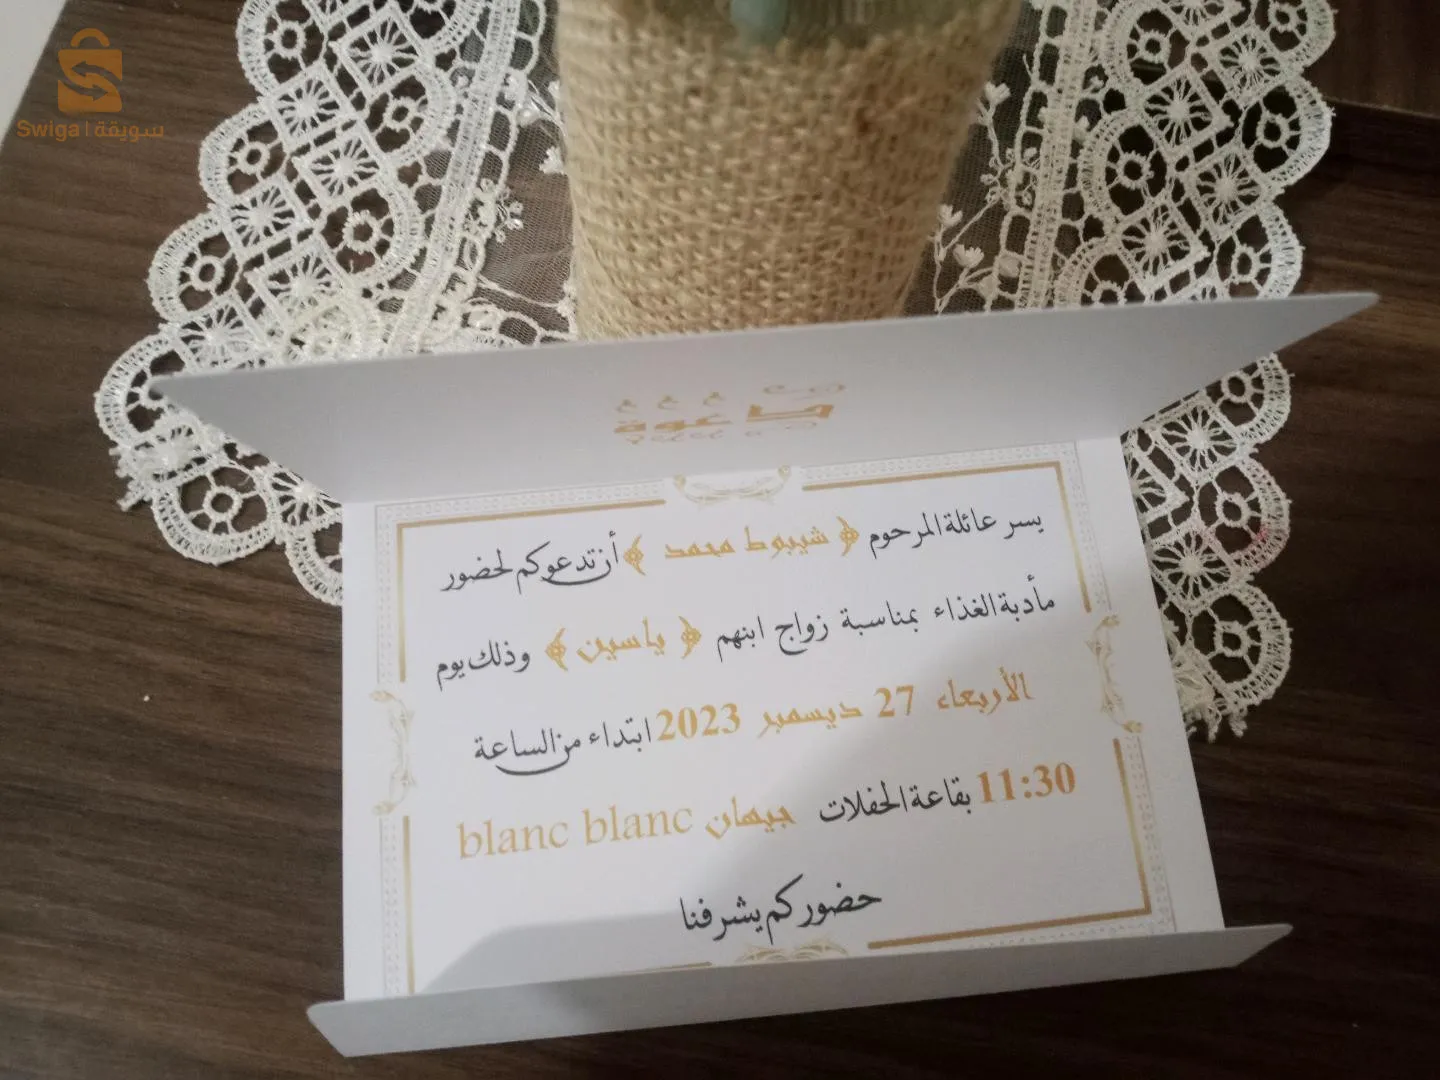 Swiga | سويقة
دعوة
يسر عائلة المرحوم ﴿ شيبوط محمد ﴾ أن تدعوكم لحضور
مأدبة الغذاء بمناسبة زواج ابنهم ﴿ ياسين ﴾ وذلك يوم
الأربعاء 27 ديسمبر 2023 ابتداء من الساعة
11:30 بقاعة الحفلات جيهان blanc blanc
حضوركم يشرفنا